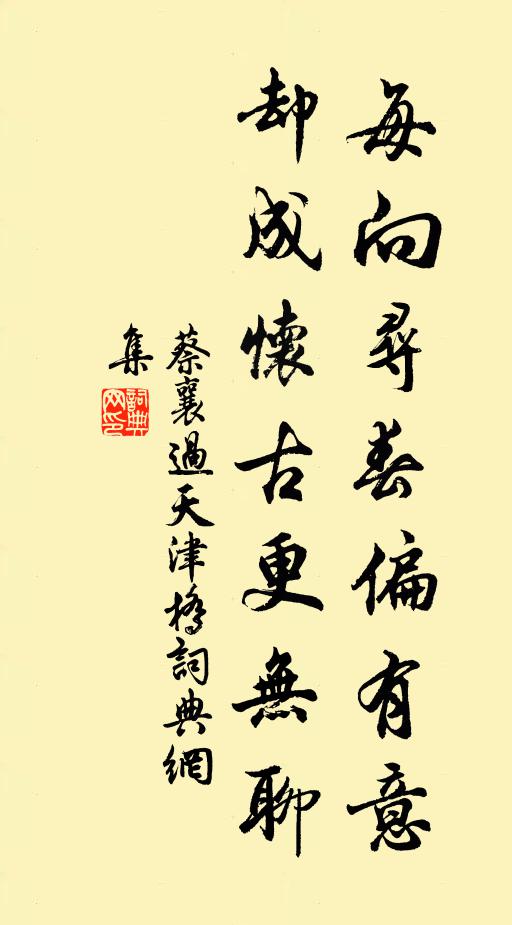 每向尋春偏有意
却成懷古更無聊
蔡襄過天津橋詞典網
集
詞典
网印